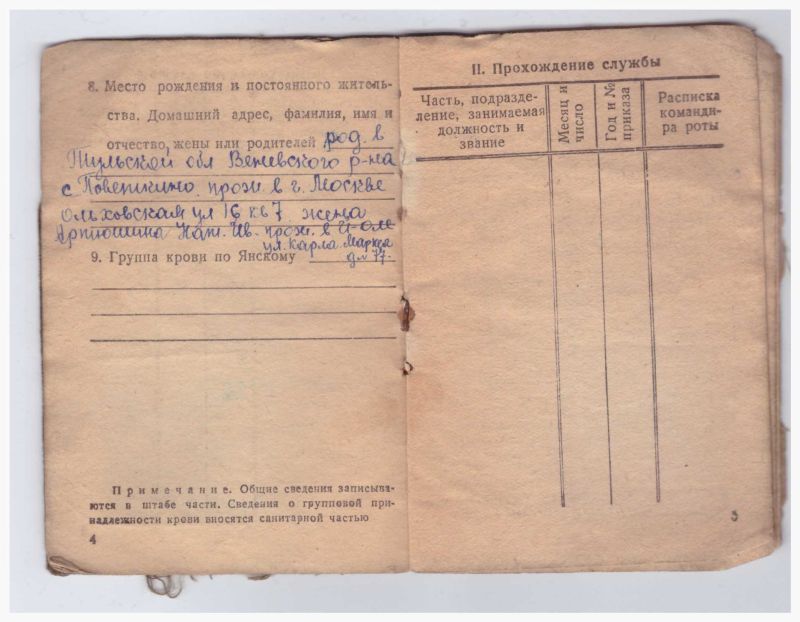 8. Место рождения и постоянного житель-
ства. Домашний адрес, фамилия, имя и
отчество, жены или родителей род. в
Тульской обл Веневского р-на
с Поветкино. прож в г. Москве
Ольховская ул 16 кв 7. жена
Артюшина Нат. Ив. прож. в
ул. Карла Маркса
д. 77.
9. Группа крови по Янскому
Примечание. Общие сведения записыва-
ются в штабе части. Сведения о групповой при-
надлежности крови вносятся санитарной частью
4
II. Прохождение службы
Часть, подразде-
ление, занимаемая
должность и
звание
Месяц и
число
Год и №
приказа
Расписка
команди-
ра роты
5